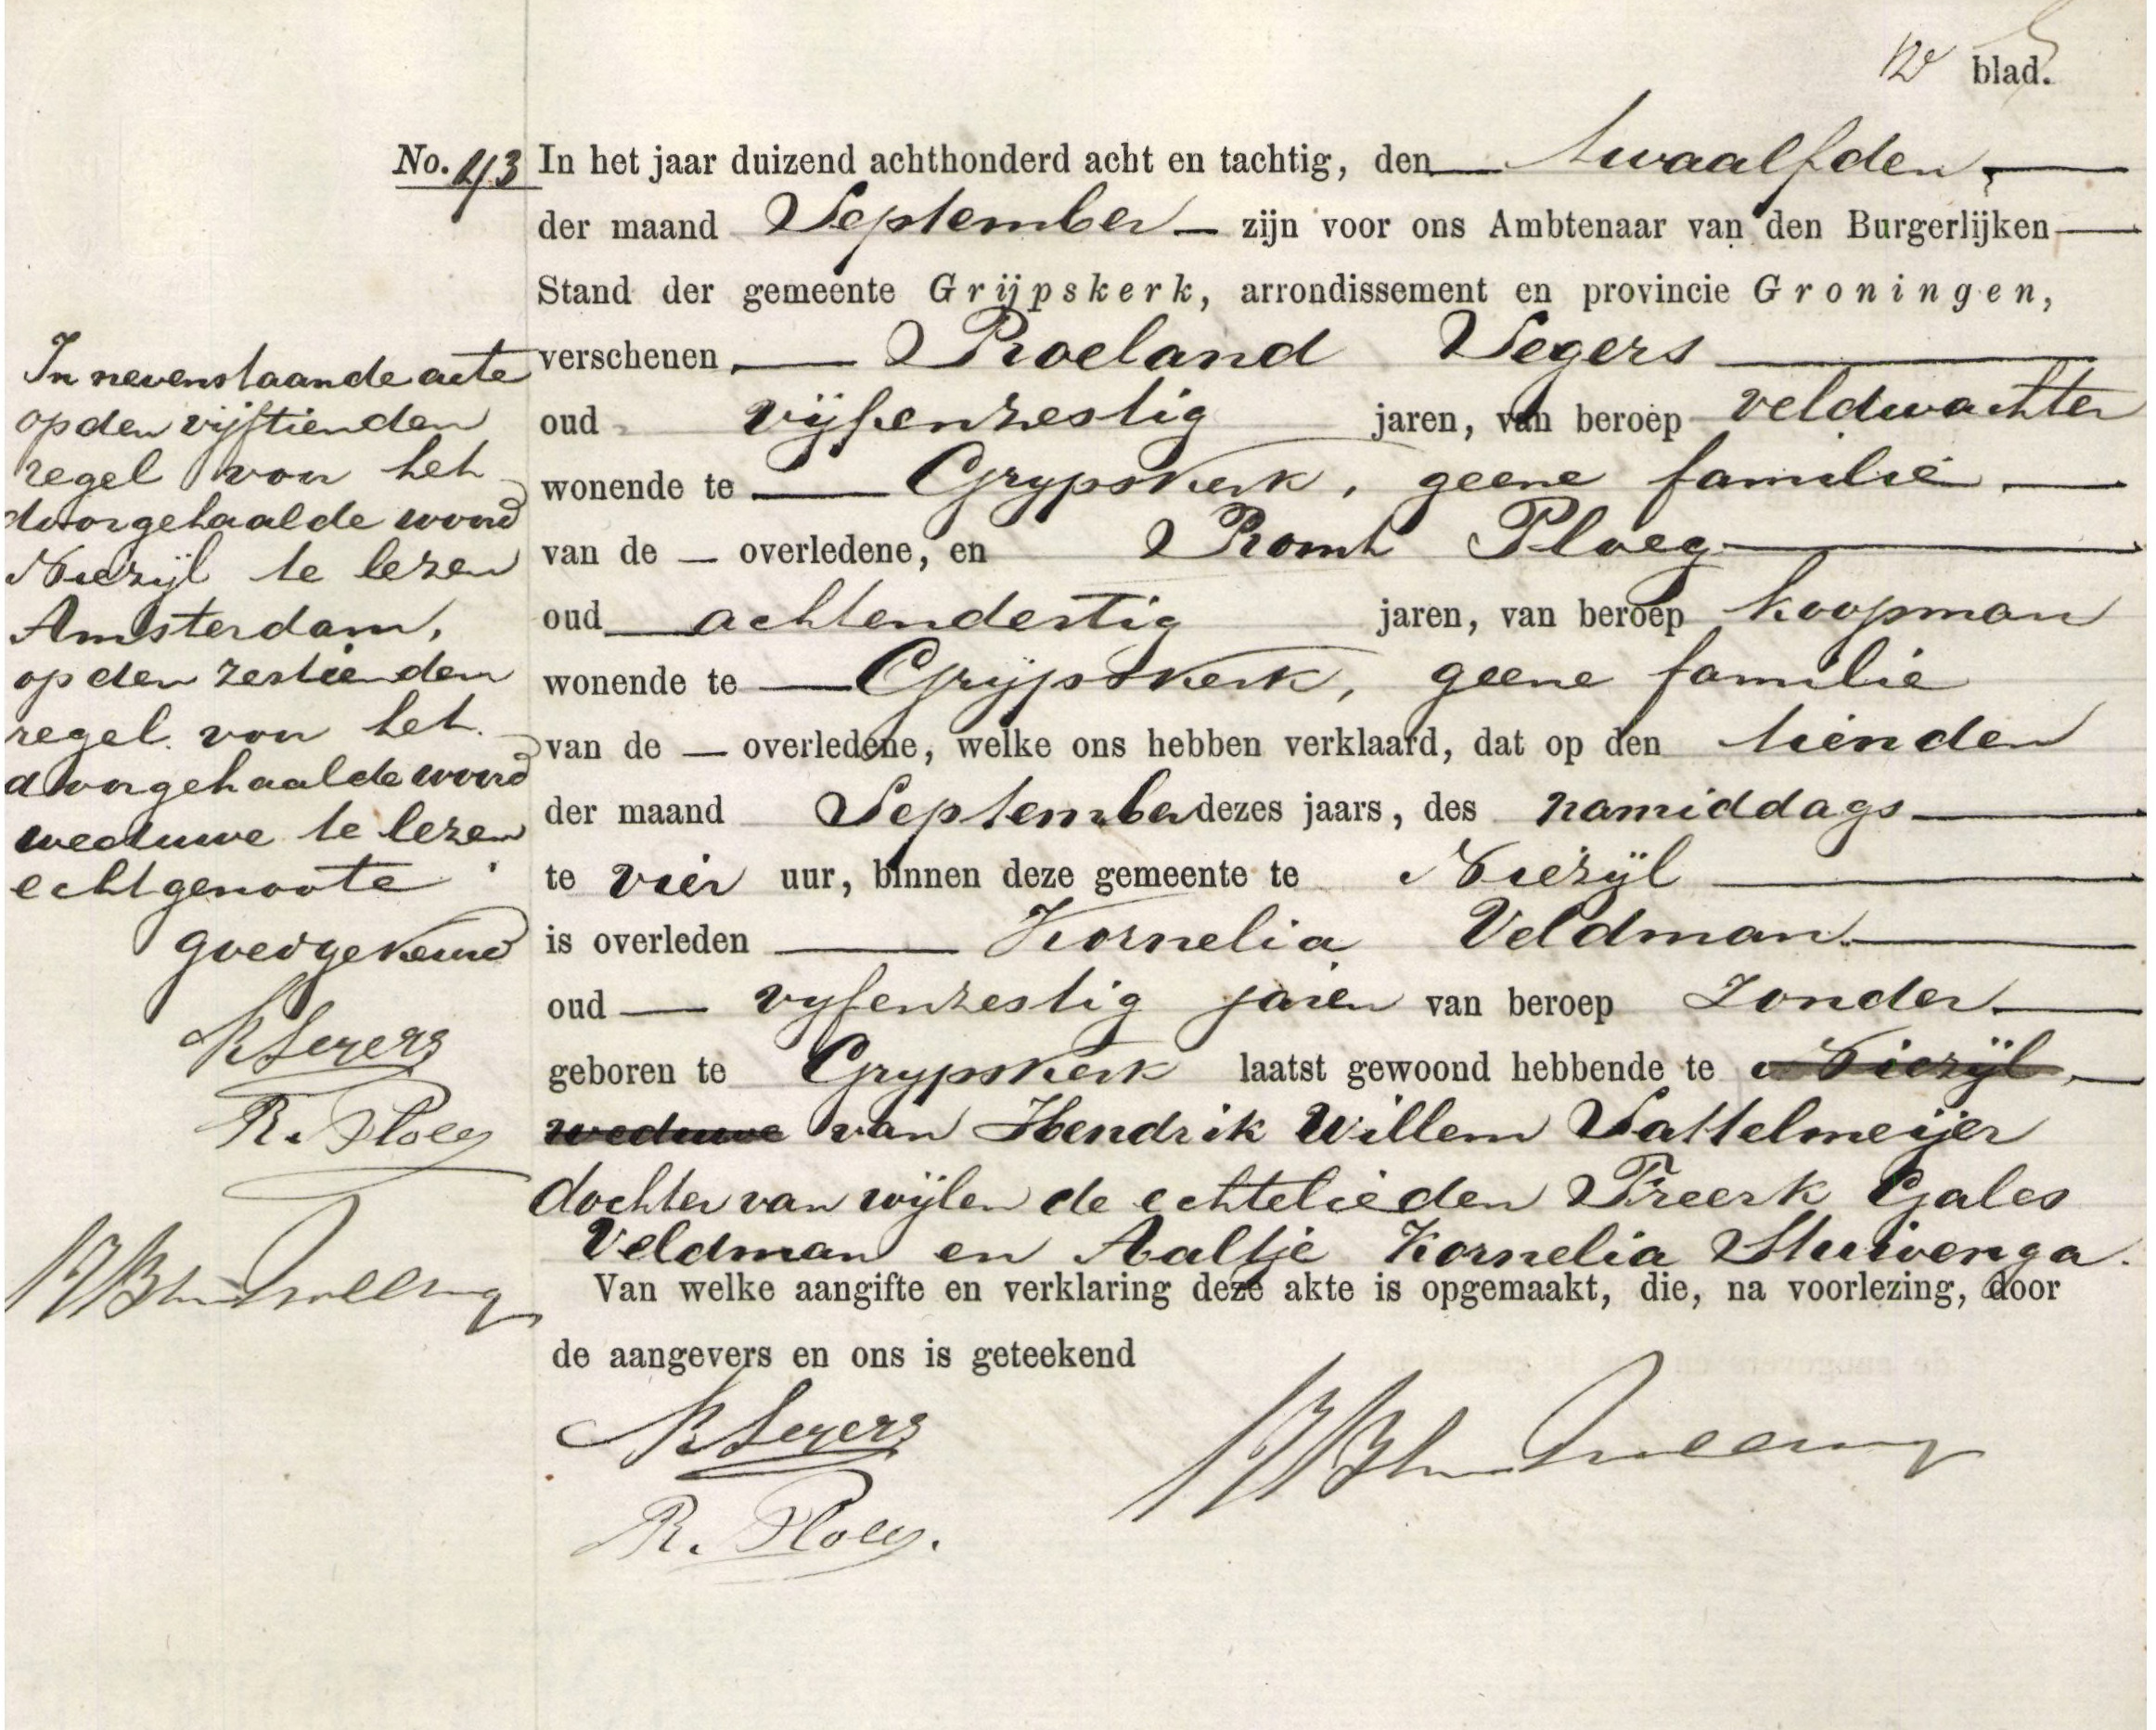 12e blad.
No. 43 In het jaar duizend achthonderd acht en tachtig, den twaalfden,
der maand September zijn voor ons Ambtenaar van den Burgerlijken
Stand der gemeente Grijpskerk, arrondissement en provincie Groningen,
verschenen Roeland Segers
oud vijfenzestig jaren, van beroep veldwachter
wonende te Grypskerk, geene familie
van de overledene, en Romt Ploeg
oud achtendertig jaren, van beroep koopman
wonende te Grijpskerk, geene familie
van de overledene, welke ons hebben verklaard, dat op den tienden
der maand September dezes jaars, des namiddags
te vier uur, binnen deze gemeente te Niezijl
is overleden Kornelia Veldman
oud vyfenzestig jaren van beroep zonder
geboren te Grypskerk laatst gewoond hebbende te Niezijl
weduwe van Hendrik Willem Sattelmeijer
dochter van wijlen de echtelieden Freerk Gales
Veldman en Aaltje Kornelia Stuivenga.
Van welke aangifte en verklaring deze akte is opgemaakt, die, na voorlezing, door
de aangevers en ons is geteekend
R Segers
R. Ploeg.
In nevenstaande acte
op den vijftienden
regel van het
doorgehaalde woord
Niezijl te lezen
Amsterdam,
op den zestienden
regel van het
doorgehaalde woord
weduwe te lezen
echtgenoote
goedgekeurd
R Segers
R. Ploeg